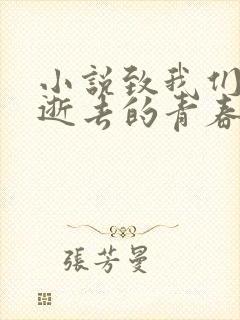 小説致我们
逝去的青春
張芳曼